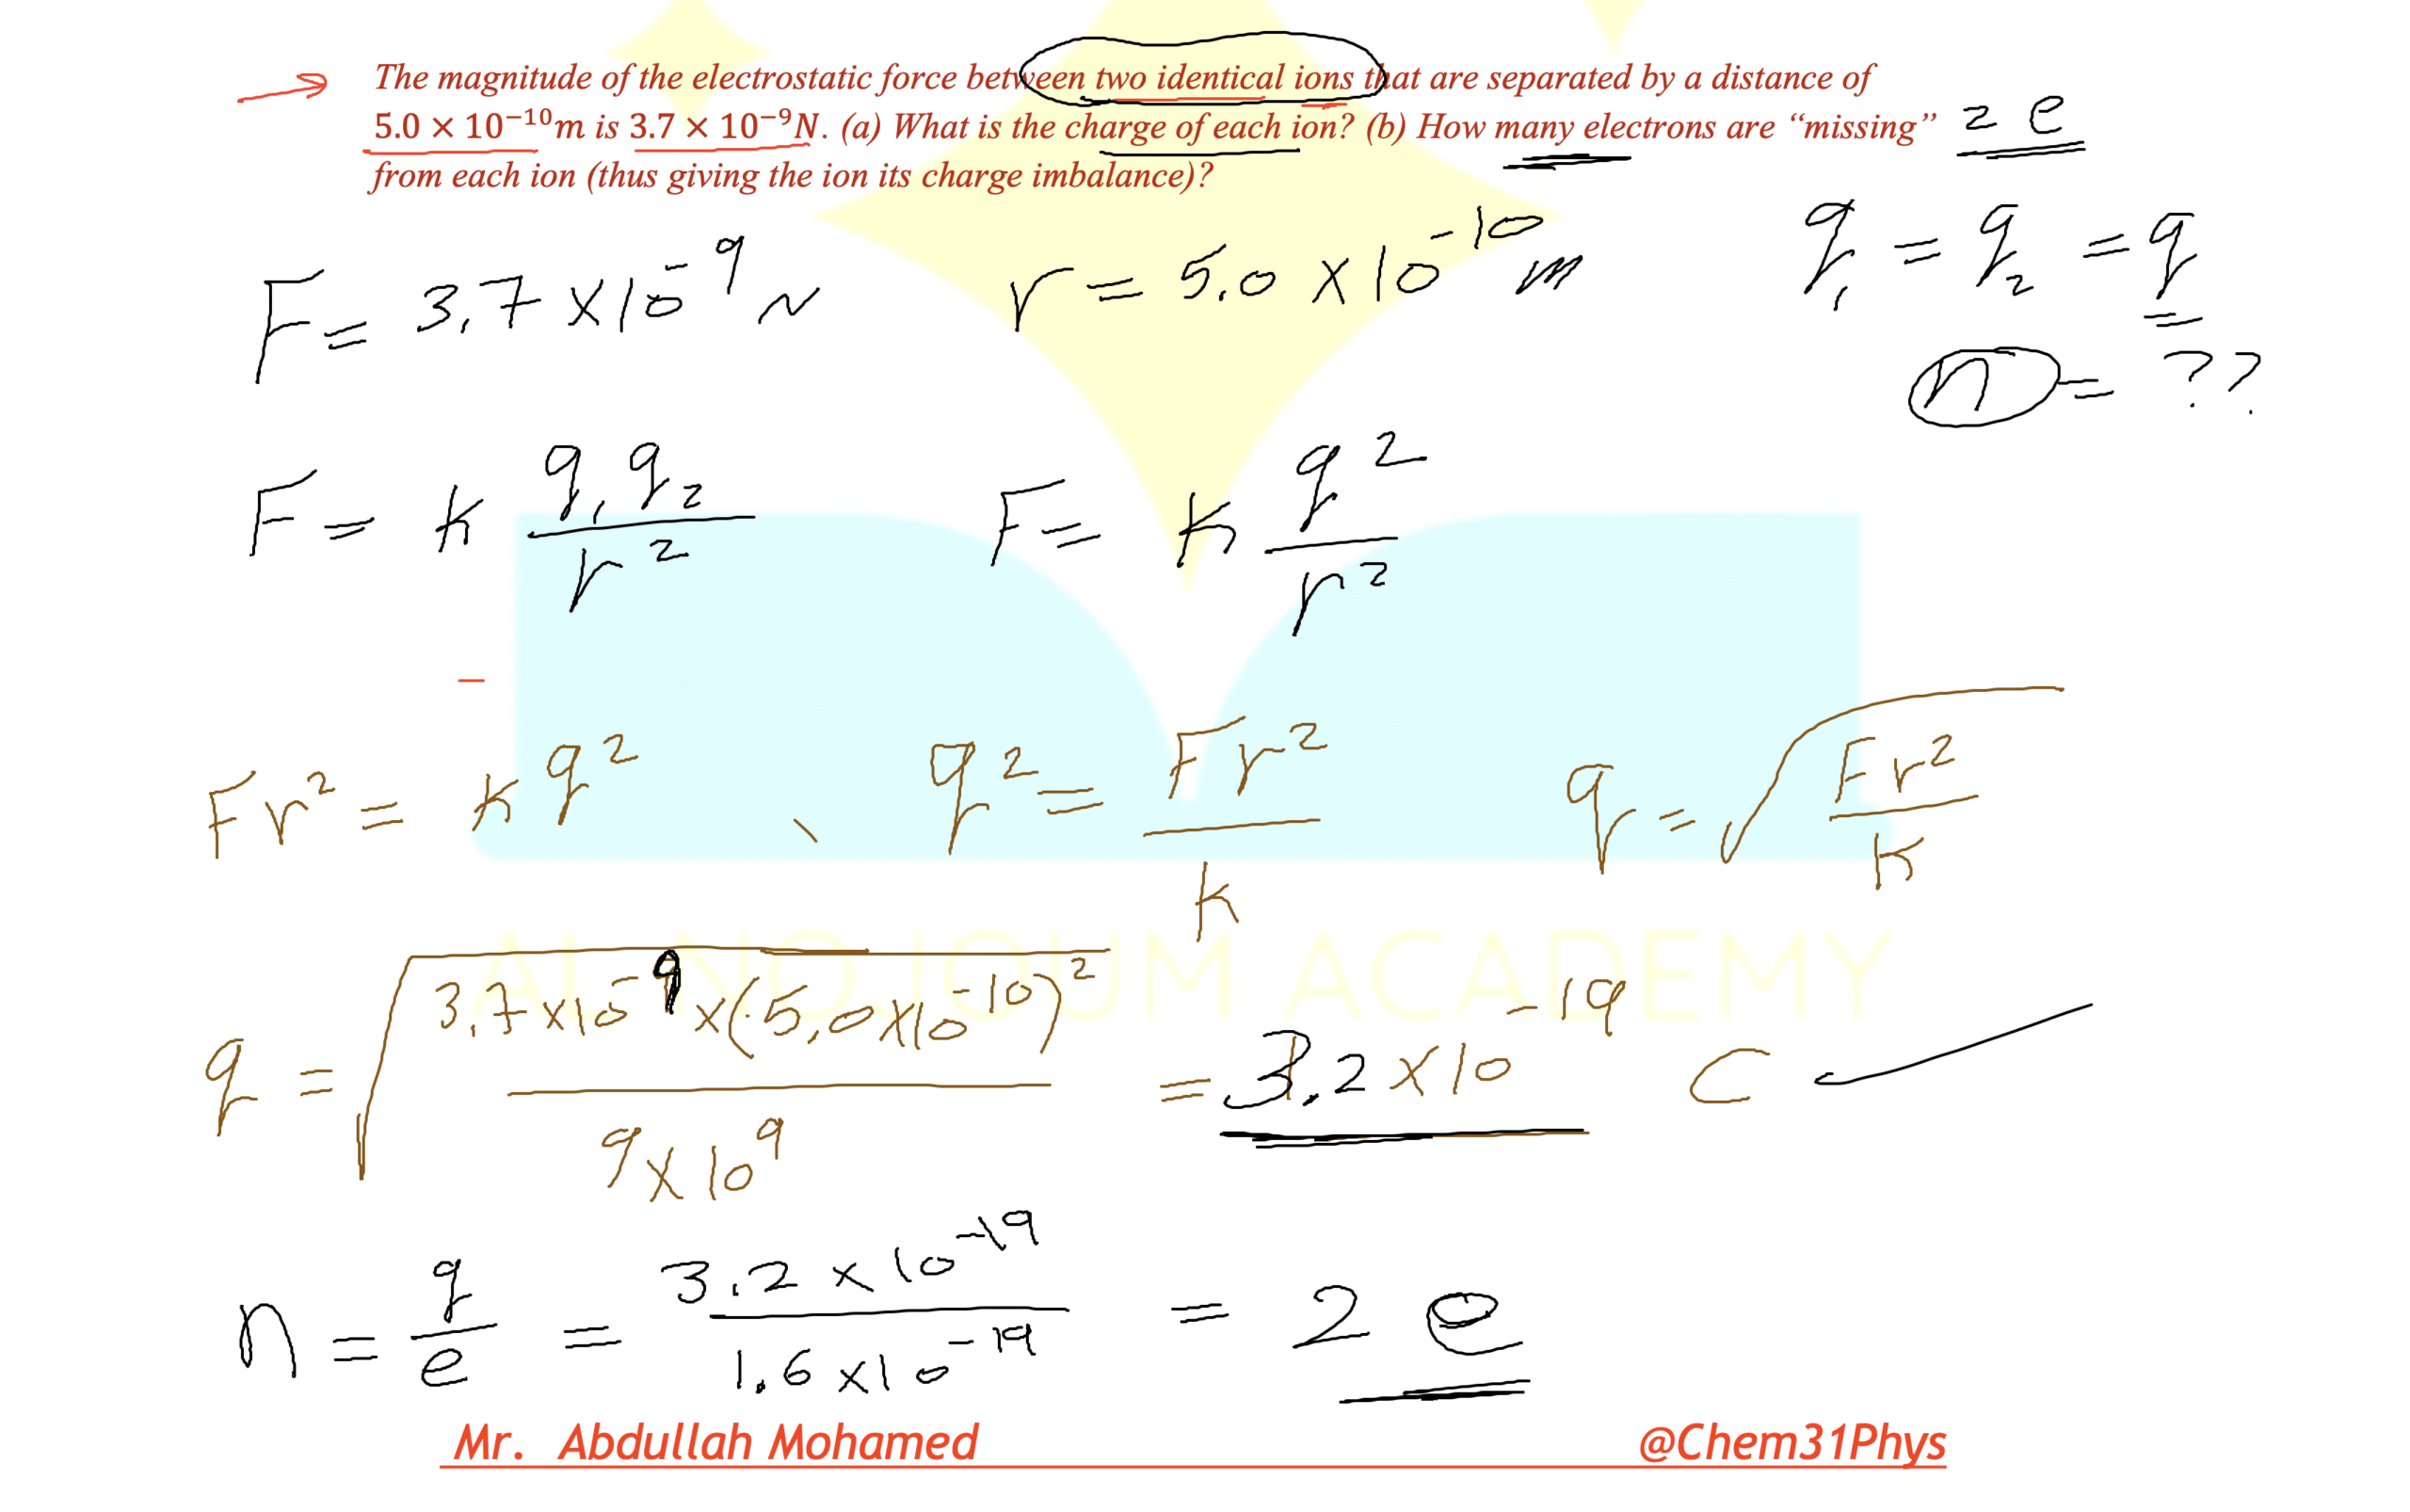 The magnitude of the electrostatic force between two identical ions that are separated by a distance of
5.0 × 10⁻¹⁰m is 3.7 × 10⁻⁹N. (a) What is the charge of each ion? (b) How many electrons are “missing” = e
from each ion (thus giving the ion its charge imbalance)?
F = 3.7 × 10⁻⁹ N r = 5.0 × 10⁻¹⁰ m q₁ = q₂ = q
n = ??
F = k q₁q₂ / r² F = k q² / r²
Fr² = kq² q² = Fr² / k q = √(Fr² / k)
AL NOJOUM ACADEMY
q = √(3.7 × 10⁻⁹ × (5.0 × 10⁻¹⁰)² / 9 × 10⁹) = 3.2 × 10⁻¹⁹ C
n = q / e = 3.2 × 10⁻¹⁹ / 1.6 × 10⁻¹⁹ = 2 e
Mr. Abdullah Mohamed @Chem31Phys